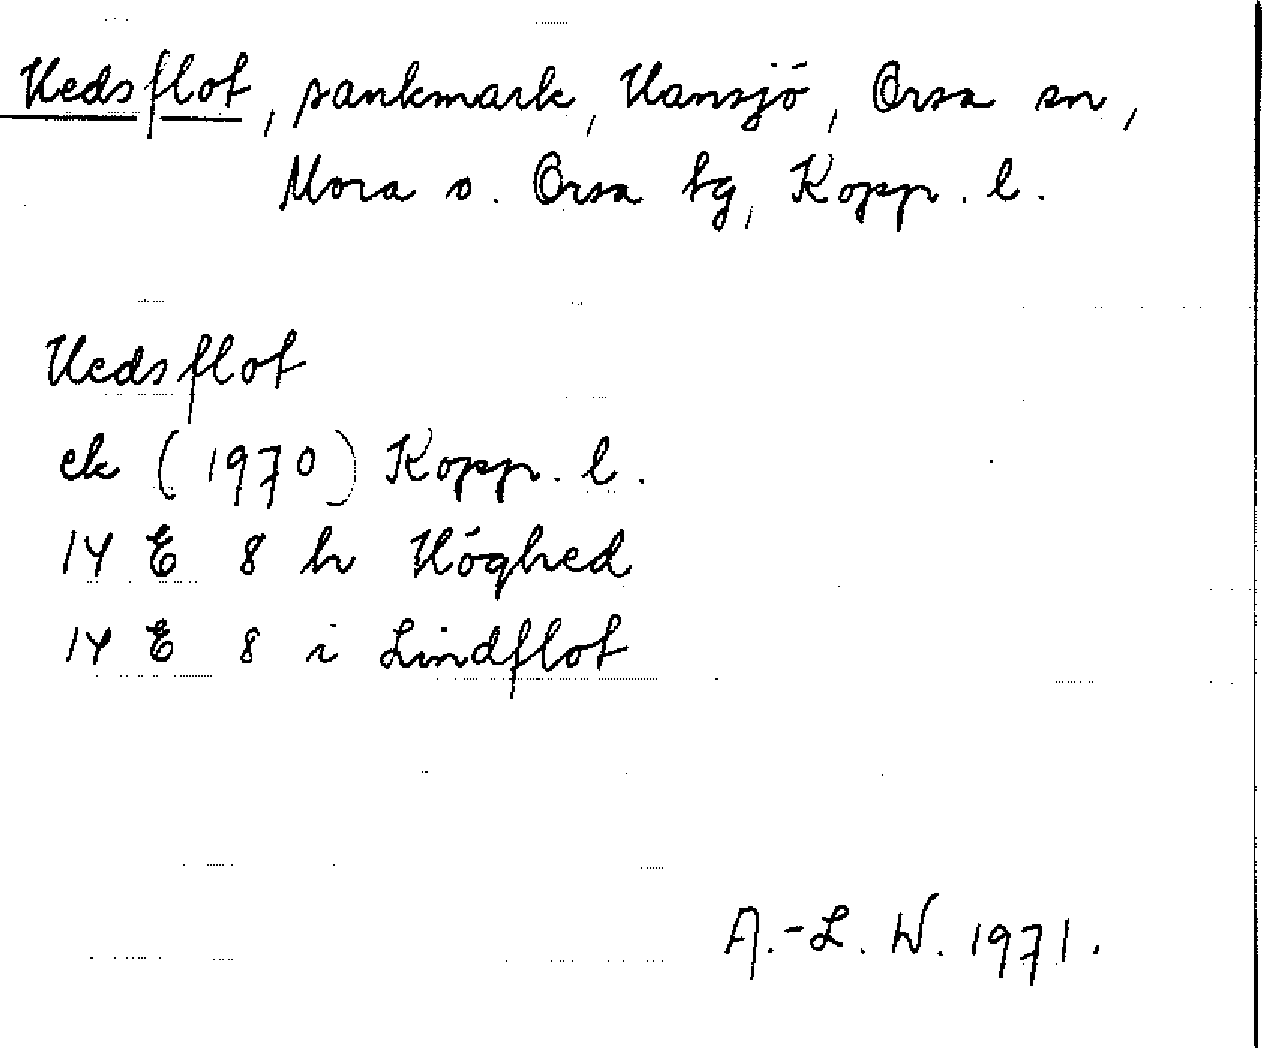 Hedsflot, sankmark, Hansjö, Orsa sn,
Mora o. Orsa tg, Kopp. l.
Hedsflot
ek (1970) Kopp. l.
14 E 8 h Höghed
14 E 8 i Lindflot
A.-L. W. 1971.